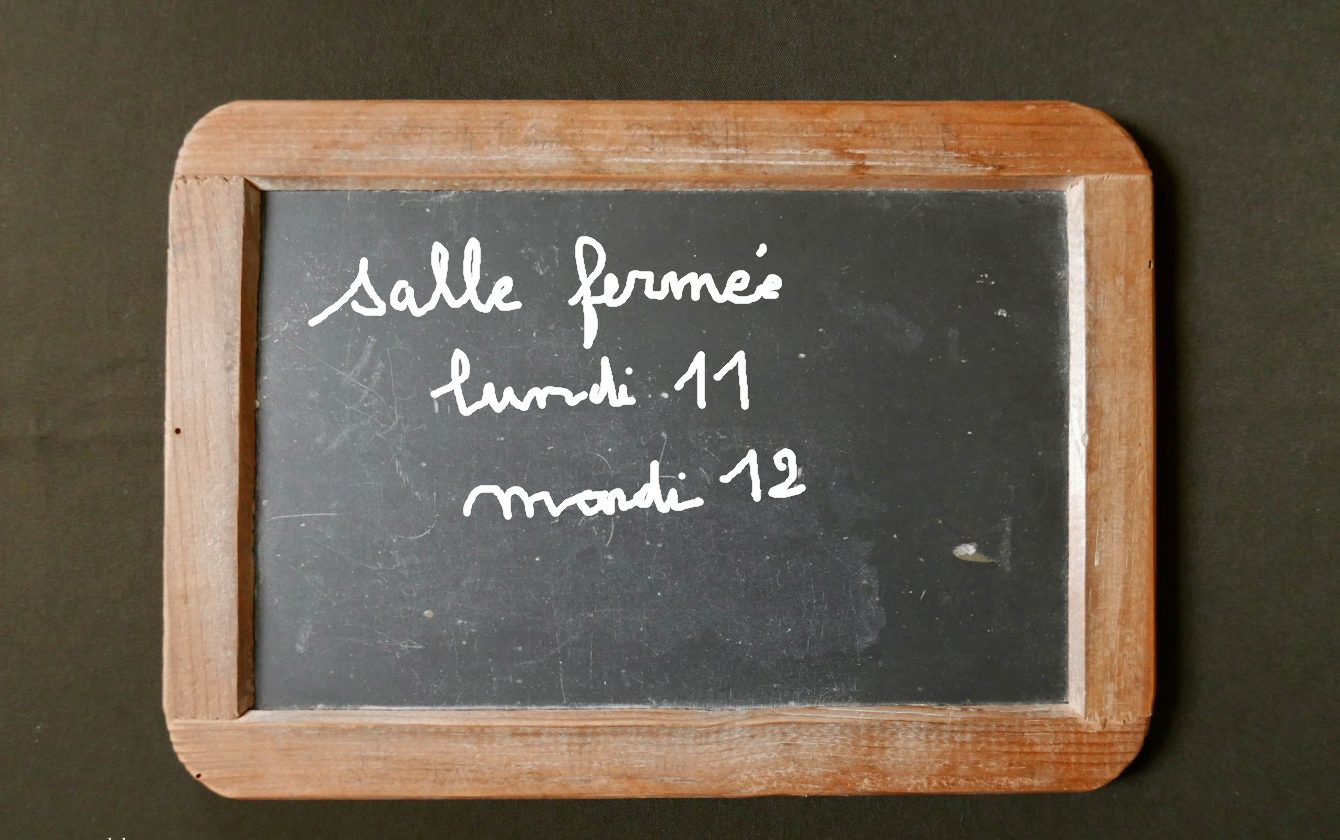 salle fermée
lundi 11
mardi 12